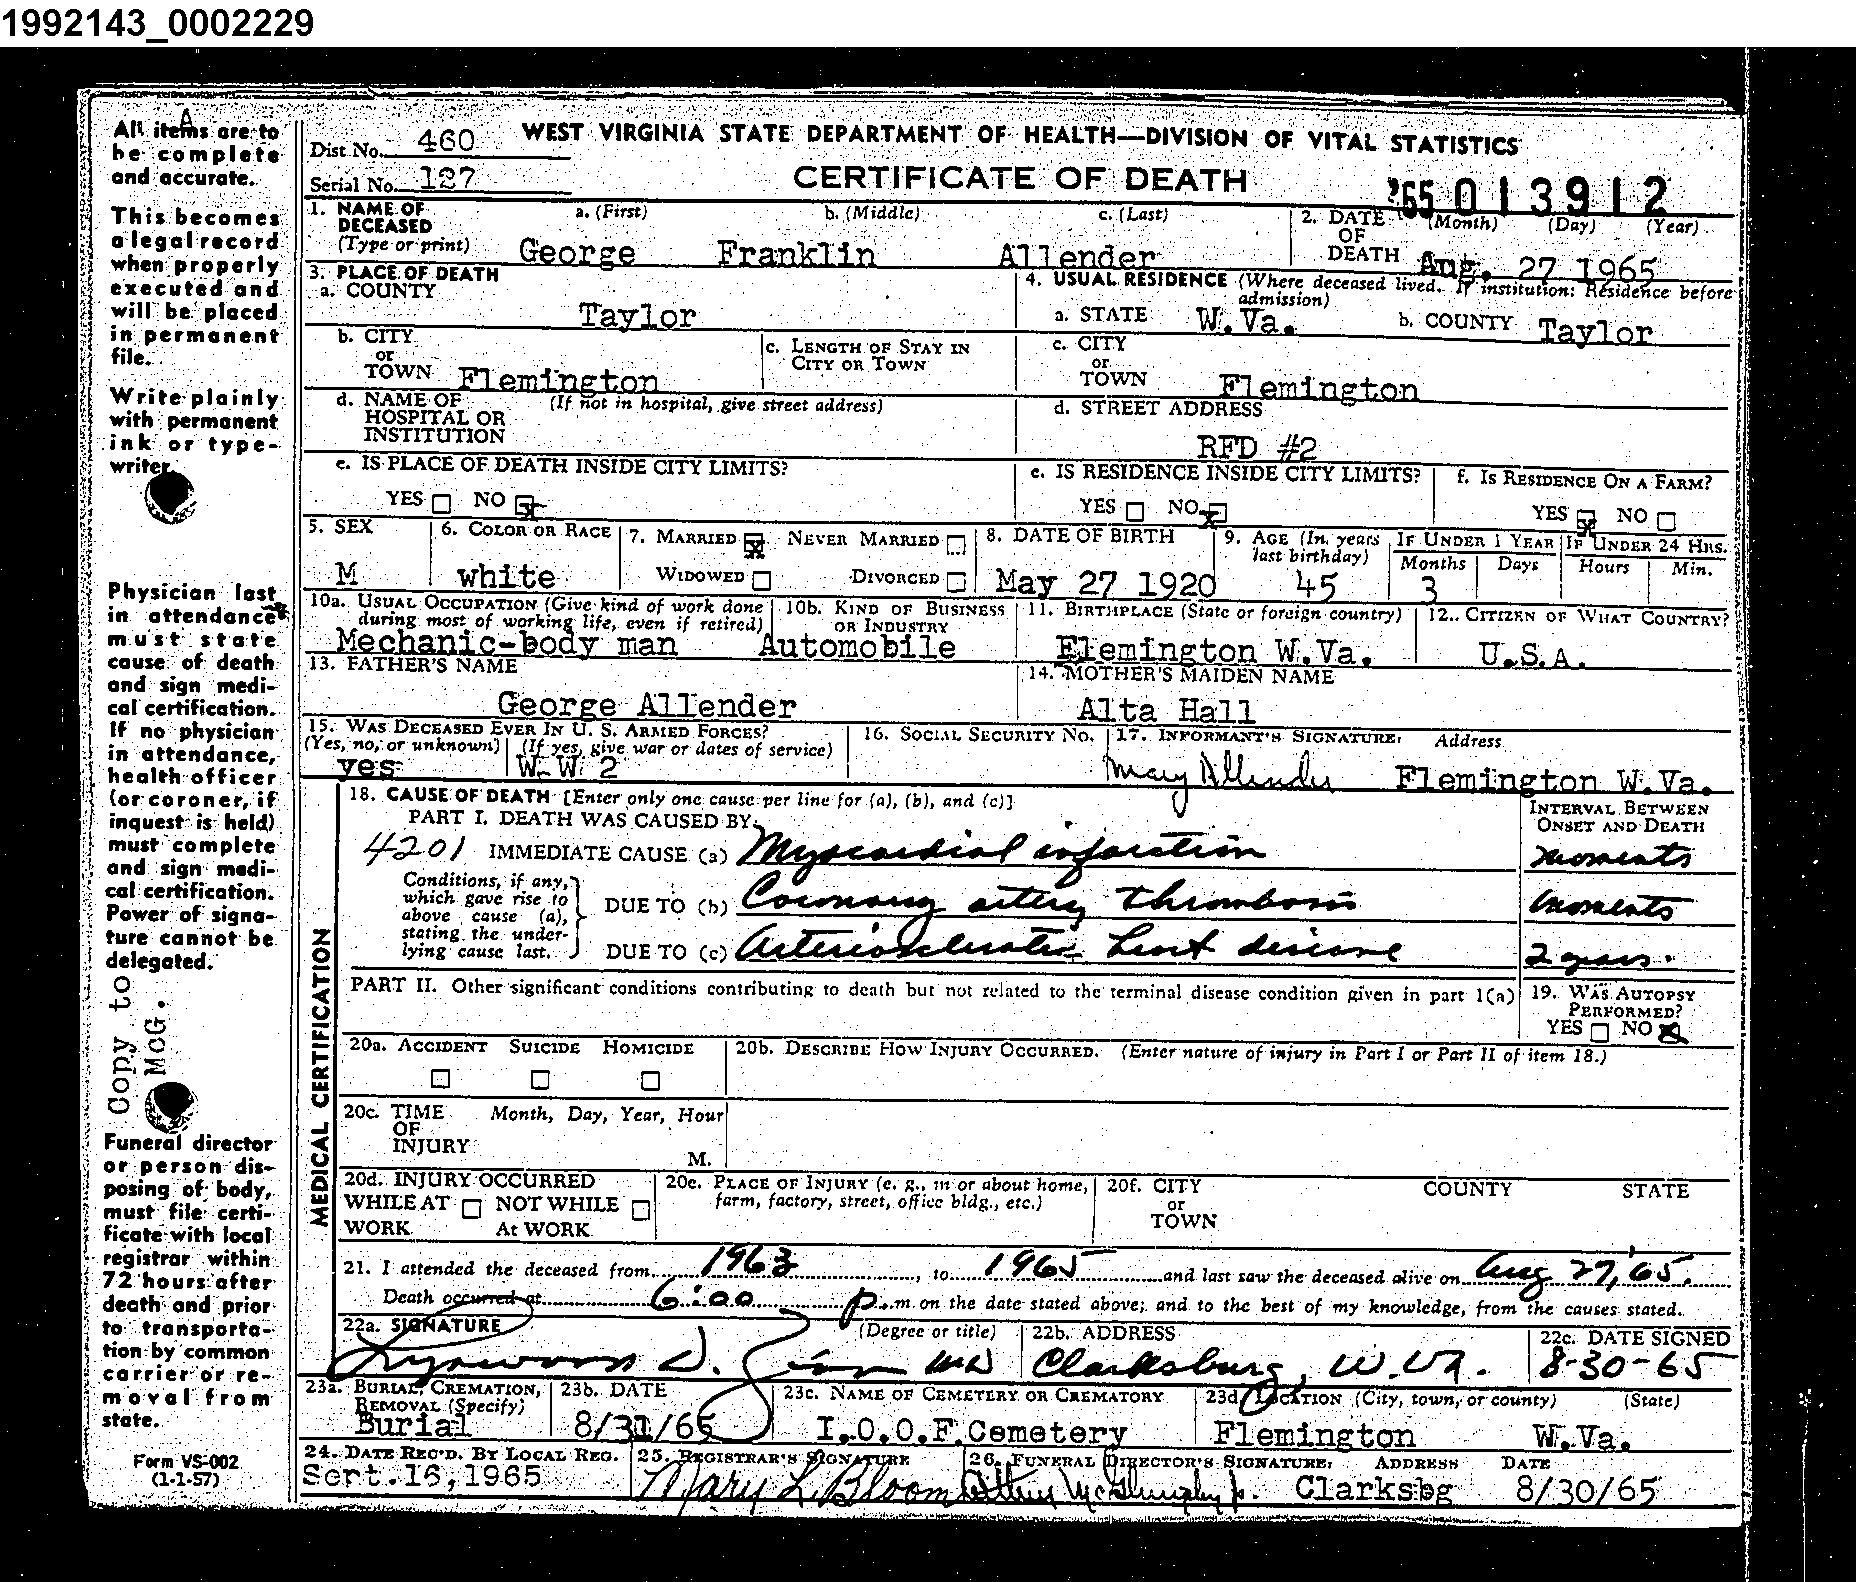 1992143_0002229
A
All items are to
be complete
and accurate.
This becomes
a legal record
when properly
executed and
will be placed
in permanent
file.
Write plainly
with permanent
ink or type-
writer.
Physician last
in attendance
must state
cause of death
and sign medi-
cal certification.
If no physician
in attendance,
health officer
(or coroner, if
inquest is held)
must complete
and sign medi-
cal certification.
Power of signa-
ture cannot be
delegated.
Copy to
McG.
Funeral director
or person dis-
posing of body,
must file certi-
ficate with local
registrar within
72 hours after
death and prior
to transporta-
tion by common
carrier or re-
moval from
state.
Form VS-002
(1-1-57)
Dist. No. 460 WEST VIRGINIA STATE DEPARTMENT OF HEALTH—DIVISION OF VITAL STATISTICS
Serial No. 127 CERTIFICATE OF DEATH '65 013912
1. NAME OF DECEASED (Type or print) a. (First) b. (Middle) c. (Last) 2. DATE OF DEATH (Month) (Day) (Year)
George Franklin Allender Aug. 27 1965
3. PLACE OF DEATH 4. USUAL RESIDENCE (Where deceased lived. If institution: Residence before admission)
a. COUNTY Taylor a. STATE W.Va. b. COUNTY Taylor
b. CITY or TOWN Flemington c. LENGTH OF STAY IN CITY OR TOWN c. CITY or TOWN Flemington
d. NAME OF HOSPITAL OR INSTITUTION (If not in hospital, give street address) d. STREET ADDRESS
RFD #2
e. IS PLACE OF DEATH INSIDE CITY LIMITS? e. IS RESIDENCE INSIDE CITY LIMITS? f. IS RESIDENCE ON A FARM?
YES NO x YES NO x YES x NO
5. SEX 6. COLOR OR RACE 7. MARRIED x NEVER MARRIED 8. DATE OF BIRTH 9. AGE (In years last birthday) IF UNDER 1 YEAR IF UNDER 24 HRS.
WIDOWED DIVORCED Months Days Hours Min.
M white May 27 1920 45 3
10a. USUAL OCCUPATION (Give kind of work done during most of working life, even if retired) 10b. KIND OF BUSINESS OR INDUSTRY 11. BIRTHPLACE (State or foreign country) 12. CITIZEN OF WHAT COUNTRY?
Mechanic-body man Automobile Flemington W.Va. U.S.A.
13. FATHER'S NAME 14. MOTHER'S MAIDEN NAME
George Allender Alta Hall
15. WAS DECEASED EVER IN U. S. ARMED FORCES? 16. SOCIAL SECURITY NO. 17. INFORMANT'S SIGNATURE: Address
(Yes, no, or unknown) (If yes, give war or dates of service)
yes W. W. 2 Mary Allender Flemington W.Va.
MEDICAL CERTIFICATION
18. CAUSE OF DEATH [Enter only one cause per line for (a), (b), and (c)] INTERVAL BETWEEN ONSET AND DEATH
PART I. DEATH WAS CAUSED BY:
4201 IMMEDIATE CAUSE (a) Myocardial infarction moments
Conditions, if any, which gave rise to above cause (a), stating the under-lying cause last.
DUE TO (b) Coronary artery thrombosis moments
DUE TO (c) Arteriosclerotic heart disease 2 years.
PART II. Other significant conditions contributing to death but not related to the terminal disease condition given in part 1(a) 19. WAS AUTOPSY PERFORMED?
YES NO x
20a. ACCIDENT SUICIDE HOMICIDE 20b. DESCRIBE HOW INJURY OCCURRED. (Enter nature of injury in Part I or Part II of item 18.)
20c. TIME OF INJURY Month, Day, Year, Hour
M.
20d. INJURY OCCURRED 20e. PLACE OF INJURY (e. g., in or about home, farm, factory, street, office bldg., etc.) 20f. CITY or TOWN COUNTY STATE
WHILE AT WORK NOT WHILE At WORK
21. I attended the deceased from 1963, to 1965 and last saw the deceased alive on Aug 27, '65.
Death occurred at 6:00 p.m on the date stated above; and to the best of my knowledge, from the causes stated.
22a. SIGNATURE (Degree or title) 22b. ADDRESS 22c. DATE SIGNED
D. MD Clarksburg, W.Va. 8-30-65
23a. BURIAL, CREMATION, REMOVAL (Specify) 23b. DATE 23c. NAME OF CEMETERY OR CREMATORY 23d. LOCATION (City, town, or county) (State)
Burial 8/31/65 I.O.O.F. Cemetery Flemington W.Va.
24. DATE REC'D. BY LOCAL REG. 25. REGISTRAR'S SIGNATURE 26. FUNERAL DIRECTOR'S SIGNATURE: ADDRESS DATE
Sert.16,1965 Mary L. Bloom Clarksbg 8/30/65